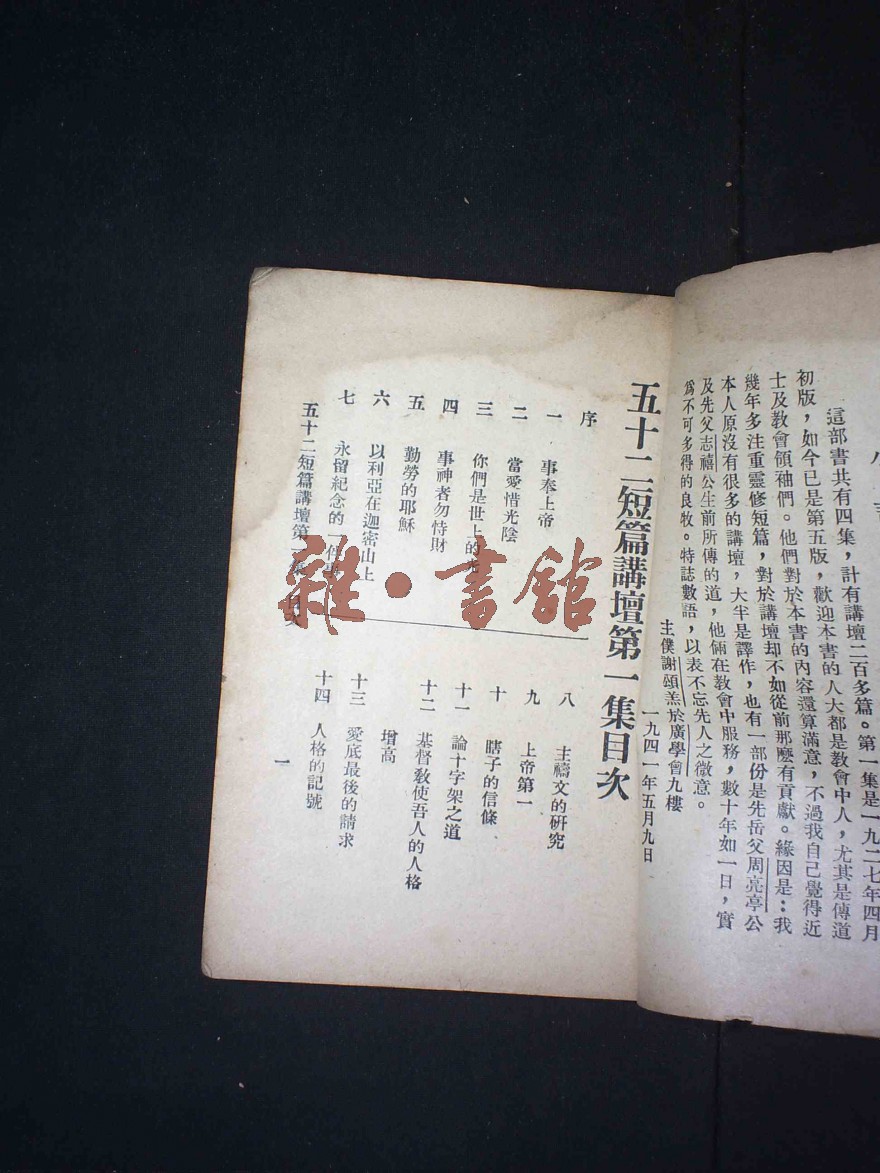 小言
這部書共有四集，計有講壇二百多篇。第一集是一九二七年四月
初版，如今已是第五版，歡迎本書的人大都是教會中人，尤其是傳道
士及教會領袖們。他們對於本書的內容還算滿意，不過我自己覺得近
幾年多注重靈修短篇，對於講壇却不如從前那麼有貢獻。緣因是：我
本人原沒有很多的講壇，大半是譯作，也有一部份是先岳父周亮亭公
及先父志禧公生前所傳的道，他倆在教會中服務，數十年如一日，實
爲不可多得的良牧。特誌數語，以表不忘先人之微意。
主僕謝頌羔於廣學會九樓
一九四一年五月九日
五十二短篇講壇第一集目次
序
一 事奉上帝
二 當愛惜光陰
三 你們是世上的光
四 事神者勿恃財
五 勤勞的耶穌
六 以利亞在迦密山上
七 永留紀念的一件事
八 主禱文的研究
九 上帝第一
十 瞎子的信條
十一 論十字架之道
十二 基督教使吾人的人格
增高
十三 愛底最後的請求
十四 人格的記號
五十二短篇講壇第一集 目次
一
雜·書館